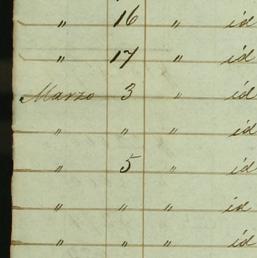 " 16 " id
" 17 " id
Marzo 3 " id
" " " id
" 5 " id
" " " id
" " " id